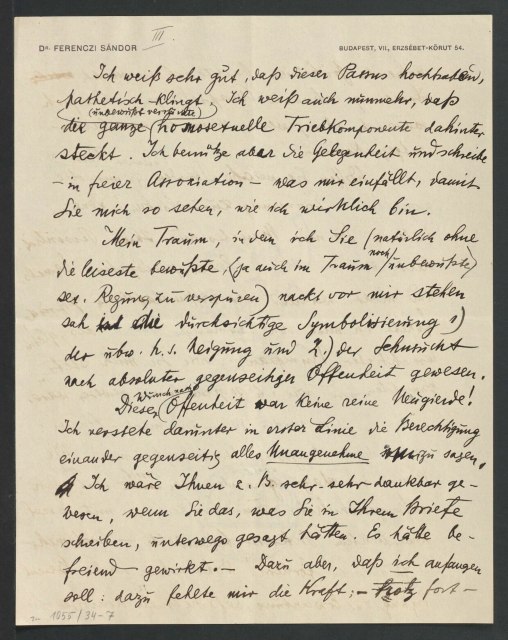 Dr. FERENCZI SÁNDOR
III.
BUDAPEST, VII., ERZSÉBET-KÖRUT 54.
Ich weiß sehr gut, daß dieser Passus hochtrabend,
pathetisch klingt. Ich weiß auch nunmehr, daß
(unbewußt verstärkte)
die ganze homosexuelle Triebkomponente dahinter
steckt. Ich benütze aber die Gelegenheit und schreibe
– in freier Assoziation – was mir einfällt, damit
Sie mich so sehen, wie ich wirklich bin.
Mein Traum, in dem ich Sie (natürlich ohne
noch
die leiseste bewußte, (ja auch im Traum unbewußte)
sex. Regung zu verspüren) nackt vor mir stehen
sah ist die durchsichtige Symbolisierung 1)
der ubw. h. s. Neigung und 2.) der Sehnsucht
nach absoluter gegenseitiger Offenheit gewesen.
Wunsch nach
Dieser Offenheit war keine reine Neugierde!
Ich verstehe darunter in erster Linie die Berechtigung
einander gegenseitig alles Unangenehme zu sagen.
Ich wäre Ihnen z. B. sehr-sehr dankbar ge-
wesen, wenn Sie das, was Sie in Ihrem Briefe
schreiben, unterwegs gesagt hätten. Es hätte be-
freiend gewirkt. – Dazu aber, daß ich anfangen
soll: dazu fehlte mir die Kraft; – trotz fort-
1955/34-7